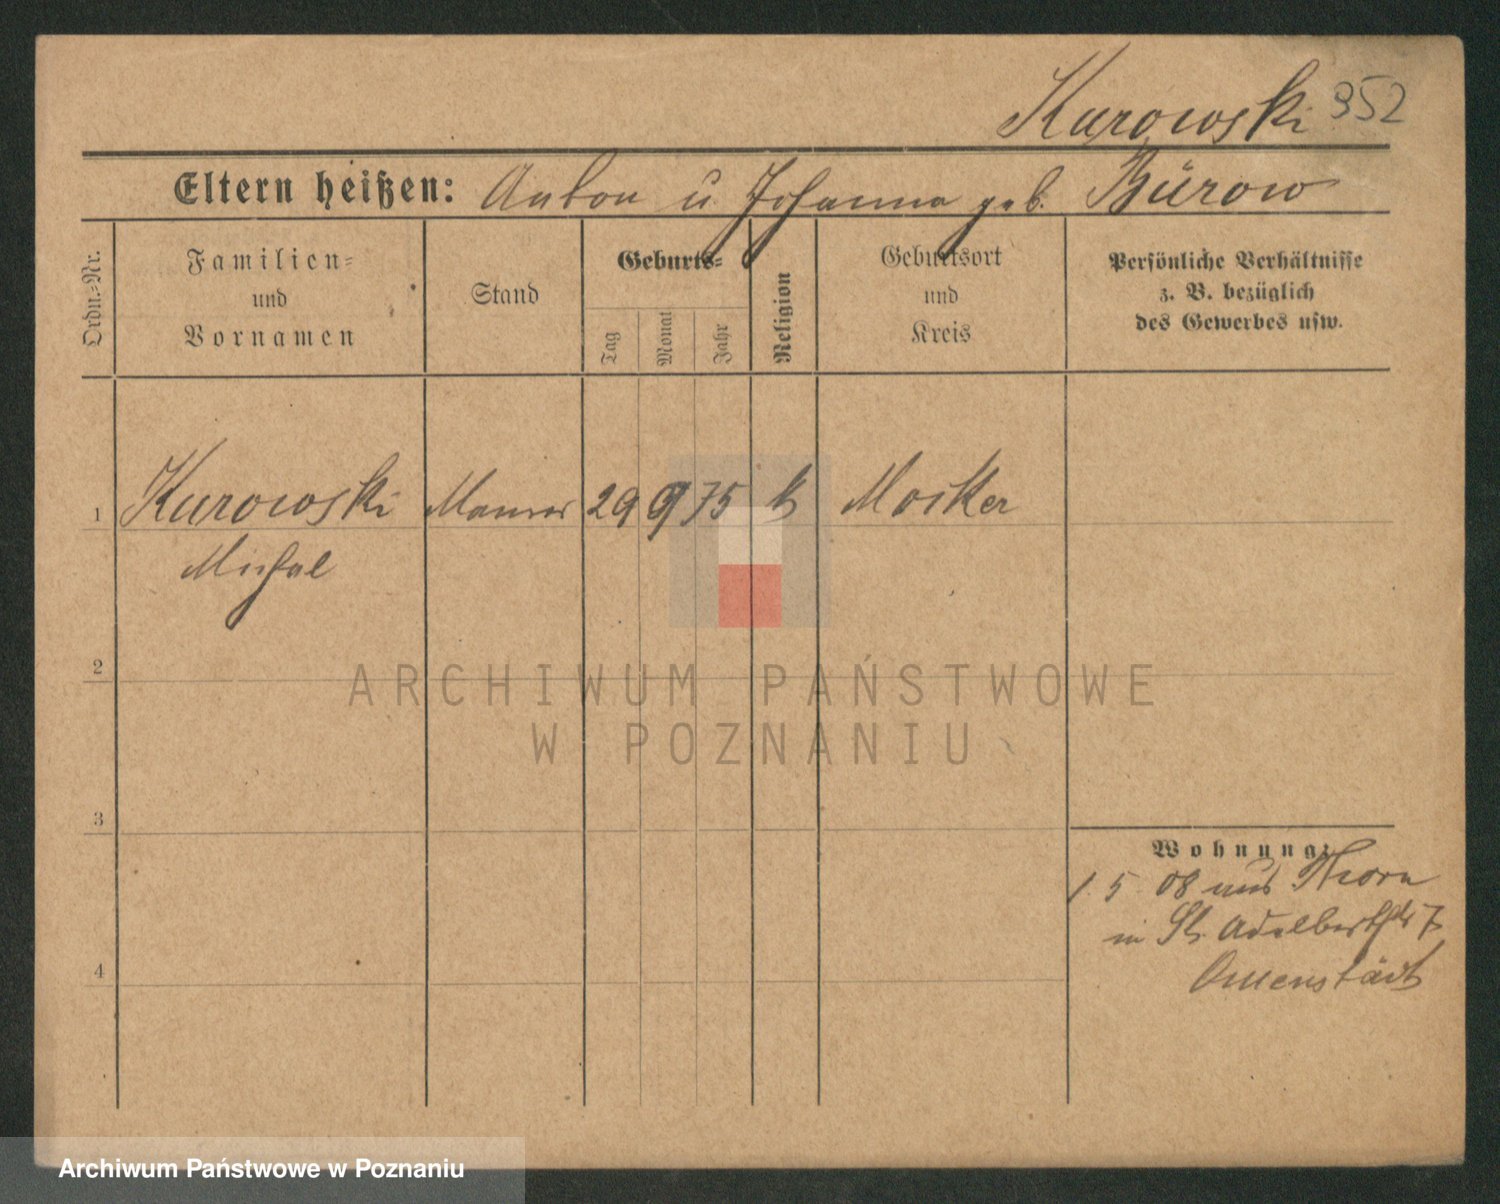 Kurowski 352
Eltern heißen: Anton u Johanna geb. Bürow
Ordn.-Nr.
Familien-
und
Vornamen
Stand
Geburts-
Tag
Monat
Jahr
Religion
Geburtsort
und
Kreis
Persönliche Verhältnisse
z. B. bezüglich
des Gewerbes usw.
1 Kurowski Maurer 29 9 75 k Mocker
Michael
2
ARCHIWUM PAŃSTWOWE
W POZNANIU
3
Wohnung:
1. 5. 08 aus Thorn
in St. Adalbertstr 7
4
Archiwum Państwowe w Poznaniu